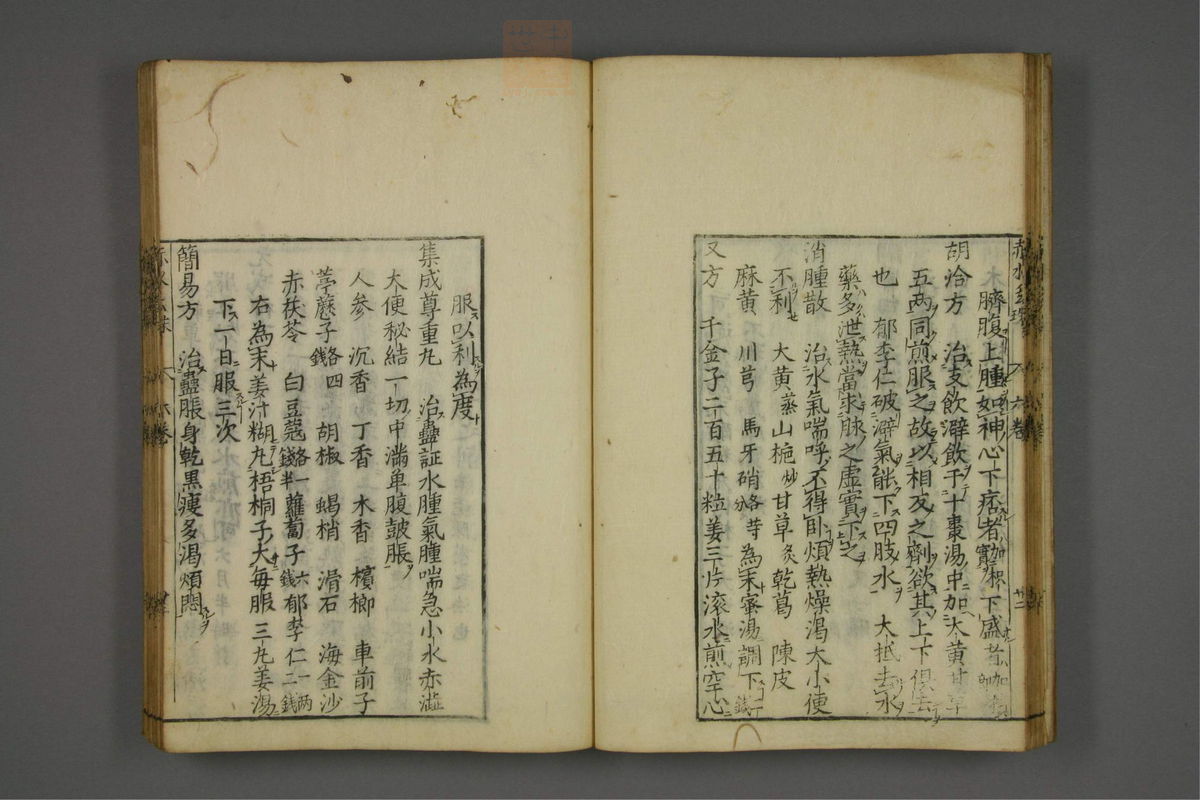 臍腹上腫如神心下痞者加枳實下盛者加
胡洽方　治支飲澼飲于十棗湯中加大黃甘草
五两同煎服之故以相反之劑欲其上下俱去
也　郁李仁破澼氣能下四肢水　大抵去水
藥多泄熱當求脉之虛實下之
消腫散　治水氣喘呼不得卧煩熱燥渴大小便
不利　大黃蒸山梔炒甘草炙乾葛　陳皮
麻黃　川芎　馬牙硝各等分為末蜜湯調下二錢
又方　千金子二百五十粒姜三片滾水煎空心
服以利為度
集成尊重丸　治蠱証水腫氣腫喘急小水赤澁
大便秘結一切中滿单腹皷脹
人參　沉香　丁香　木香　檳榔　車前子
葶藶子各四錢　胡椒　蝎梢　滑石　海金沙
赤茯苓　白豆蔻各一錢半　蘿蔔子六錢　郁李仁一两二錢
右為末姜汁糊丸梧桐子大每服三丸姜湯
下一日服三次
簡易方　治蠱脹身乾黑瘦多渴煩悶